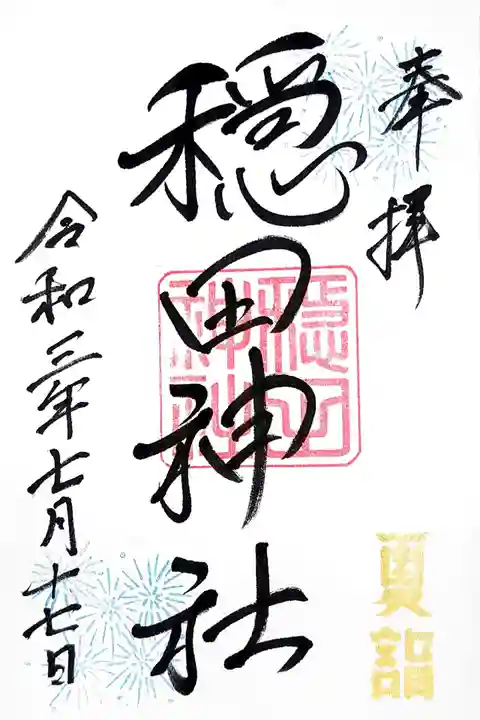 奉拝
穏田神社
穏田
神社
令和三年七月十七日
夏詣